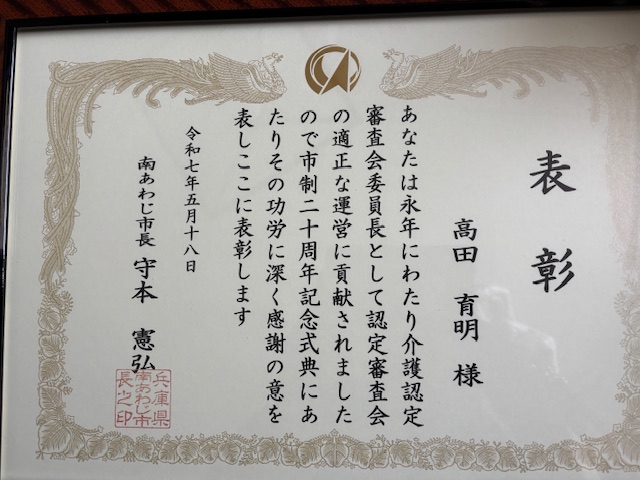 表彰
高田 育明 様
あなたは永年にわたり介護認定
審査会委員長として認定審査会
の適正な運営に貢献されました
ので市制二十周年記念式典にあ
たりその功労に深く感謝の意を
表しここに表彰します
令和七年五月十八日
南あわじ市長 守本 憲弘
兵庫県
南あわじ市
長之印